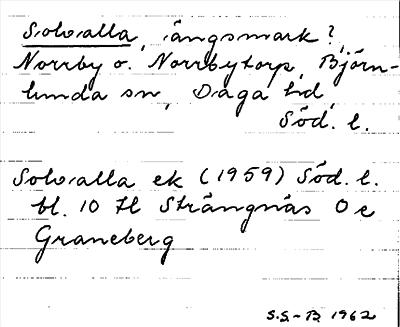 Solvalla, ängsmark?,
Norrby o. Norrbytorp, Björn-
lunda sn, Daga hd,
Söd. l.
Solvalla ek (1959) Söd. l.
bl. 10 H Strängnäs O e
Graneberg
S.S.-B. 1962